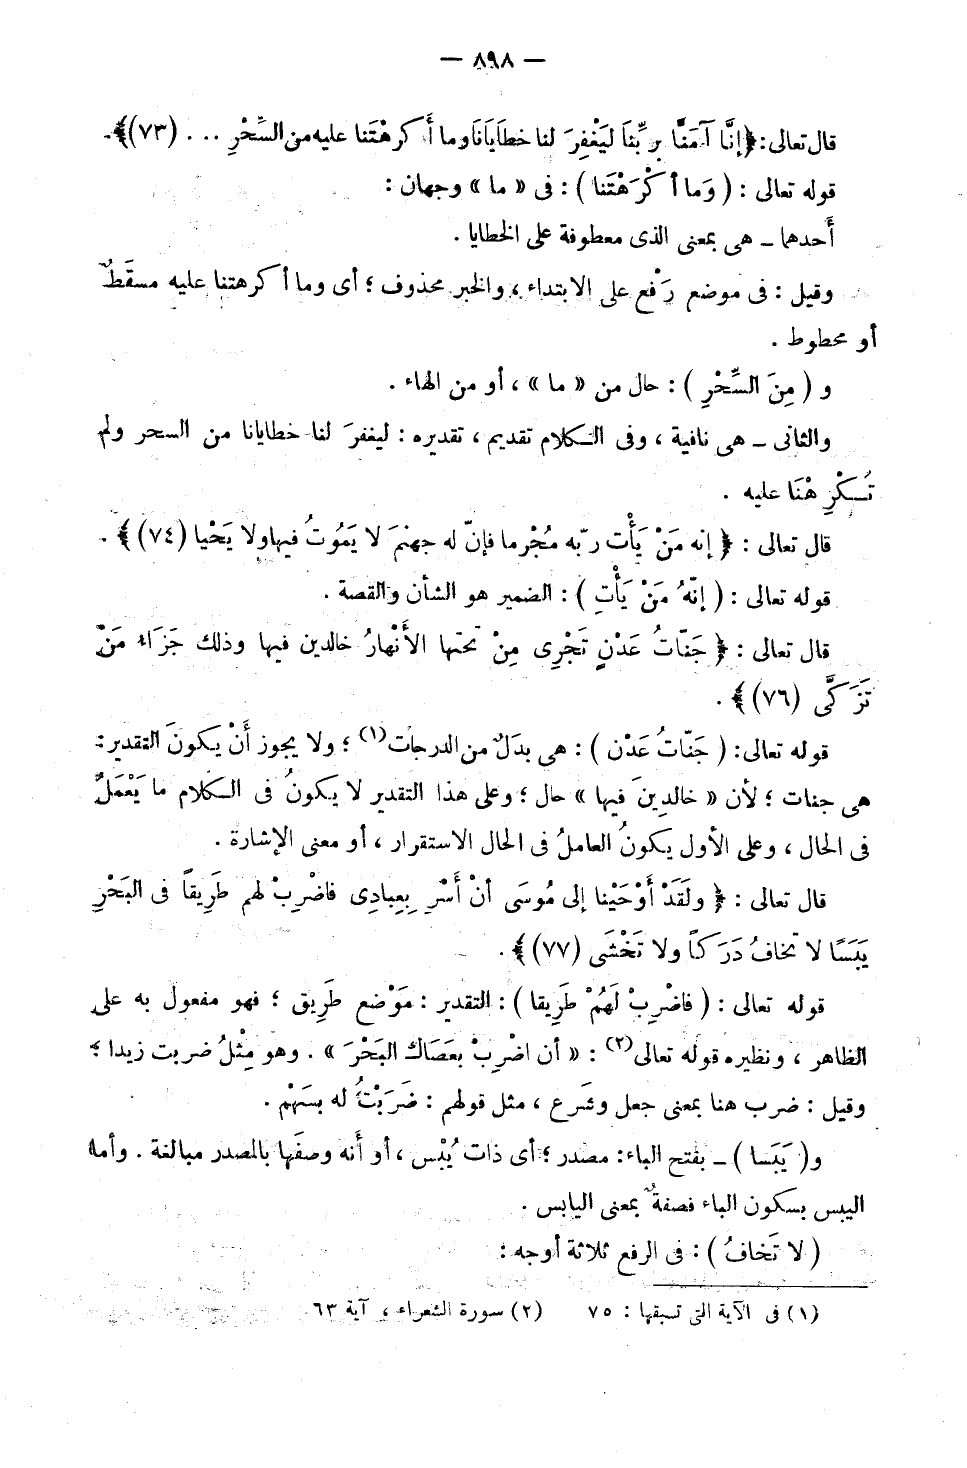 — ٨٩٨ —
قال تعالى: ﴿إنَّا آمَنَّا بِرَبِّنَا لِيَغْفِرَ لنا خطايَانَا وما أَكرهْتَنا عليه من السِّحْرِ ... (٧٣)﴾.
قوله تعالى : ( وَما أكْرَهْتَنا ) : فى « ما » وجهان :
أَحدهما ـ هى بمعنى الذى معطوفة على الخطايا .
وقيل : فى موضع رَفْع على الابتداء ، والخبر محذوف ؛ أى وما أكرهتنا عليه مسقَطٌ
أو محطوط .
و ( مِنَ السِّحْرِ ) : حال من « ما » ، أو من الهاء .
والثانى ـ هى نافية ، وفى الكلام تقديم ، تقديره : ليغفرَ لنا خطايانا من السحر ولم
تُكْرِهْنَا عليه .
قال تعالى : ﴿ إنه مَنْ يَأْت ربّه مُجْرما فإنّ له جهنمَ لا يَمُوتُ فيها ولا يَحْيا (٧٤) ﴾ .
قوله تعالى : ( إنّهُ مَنْ يَأْتِ ) : الضمير هو الشأن والقصة .
قال تعالى : ﴿ جَنّاتُ عَدْنٍ تَجْرِى مِنْ تحتها الأَنْهارُ خالدين فيها وذلك جَزَاءُ مَنْ
تَزَكَّى (٧٦) ﴾ .
قوله تعالى: ( جَنّاتُ عَدْن ) : هى بدَلٌ من الدرجات(١) ؛ ولا يجوز أنْ يكونَ التقدير:
هى جنات ؛ لأن « خالدِينَ فيها » حال ؛ وعلى هذا التقدير لا يكونُ فى الكلام ما يَعْمَلُ
فى الحال ، وعلى الأول يكونُ العاملُ فى الحال الاستقرار ، أو معنى الإشارة .
قال تعالى : ﴿ ولَقَدْ أَوْحَيْنا إلى مُوسَى أنْ أَسْرِ بِعِبادِى فاضْرِبْ لهم طَرِيقاً فى البَحْرِ
يَبَسًا لا تخافُ دَرَكاً ولا تَخْشَى (٧٧) ﴾ .
قوله تعالى : ( فاضْرِبْ لَهُمْ طَرِيقا ) : التقدير : مَوْضع طَرِيق ؛ فهو مفعول به على
الظاهر ، ونظيره قوله تعالى(٢) : « أن اضْرِبْ بعَصَاكَ البَحْرَ » . وهو مِثْلُ ضربت زيدا ؛
وقيل : ضرب هنا بمعنى جعل وشَرع ، مثل قولهم : ضَرَبْتُ له بسَهْم .
و( يَبَسا ) ـ بفتح الباء: مصدر ؛ أى ذات يُبْس ، أو أنه وصفَها بالمصدر مبالغة . وأما
اليبس بسكون الباء فصفةٌ بمعنى اليابس .
( لا تَخافُ ) : فى الرفع ثلاثة أوجه :
(١) فى الآية التى تسبقها : ٧٥    (٢) سورة الشعراء ، آية ٦٣